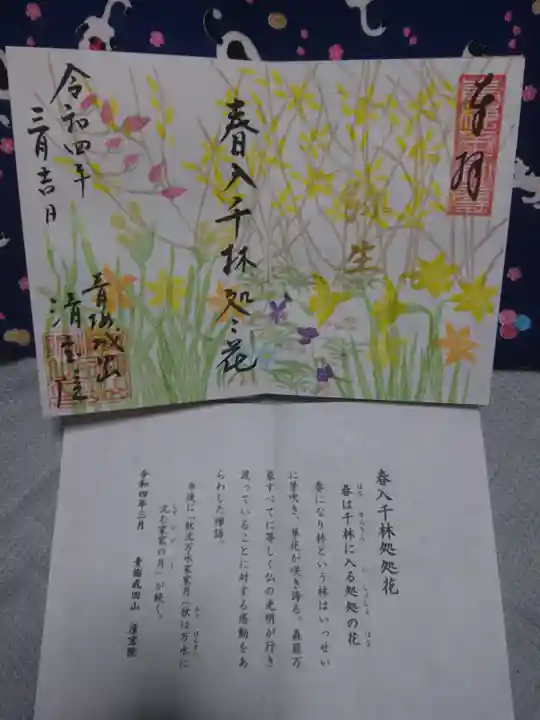 奉拝
弥生
春入千林処〻花
令和四年
三月吉日
青梅成田山
清宝院
春入千林処処花
はる せんりん い しょしょ はな
春は千林に入る処処の花
春になり林という林はいっせい
に芽吹き、草花が咲き誇る。森羅万
象すべてに等しく仏の光明が行き
渡っていることに対する感動をあ
らわした禅語。
対後に「秋沈万水家家月(秋は万水に
沈む家家の月」が続く。
令和四年三月 青梅成田山 清宝院